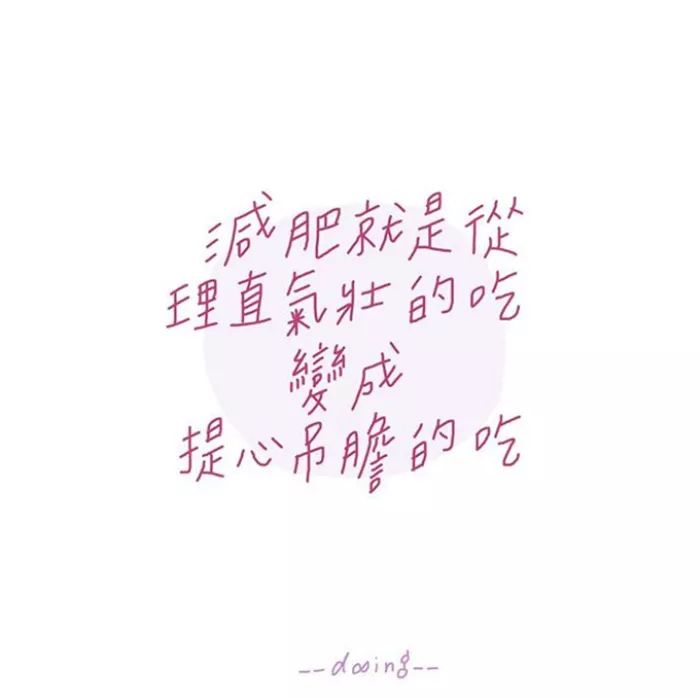 減肥就是從
理直氣壯的吃
變成
提心吊膽的吃
--dosing--